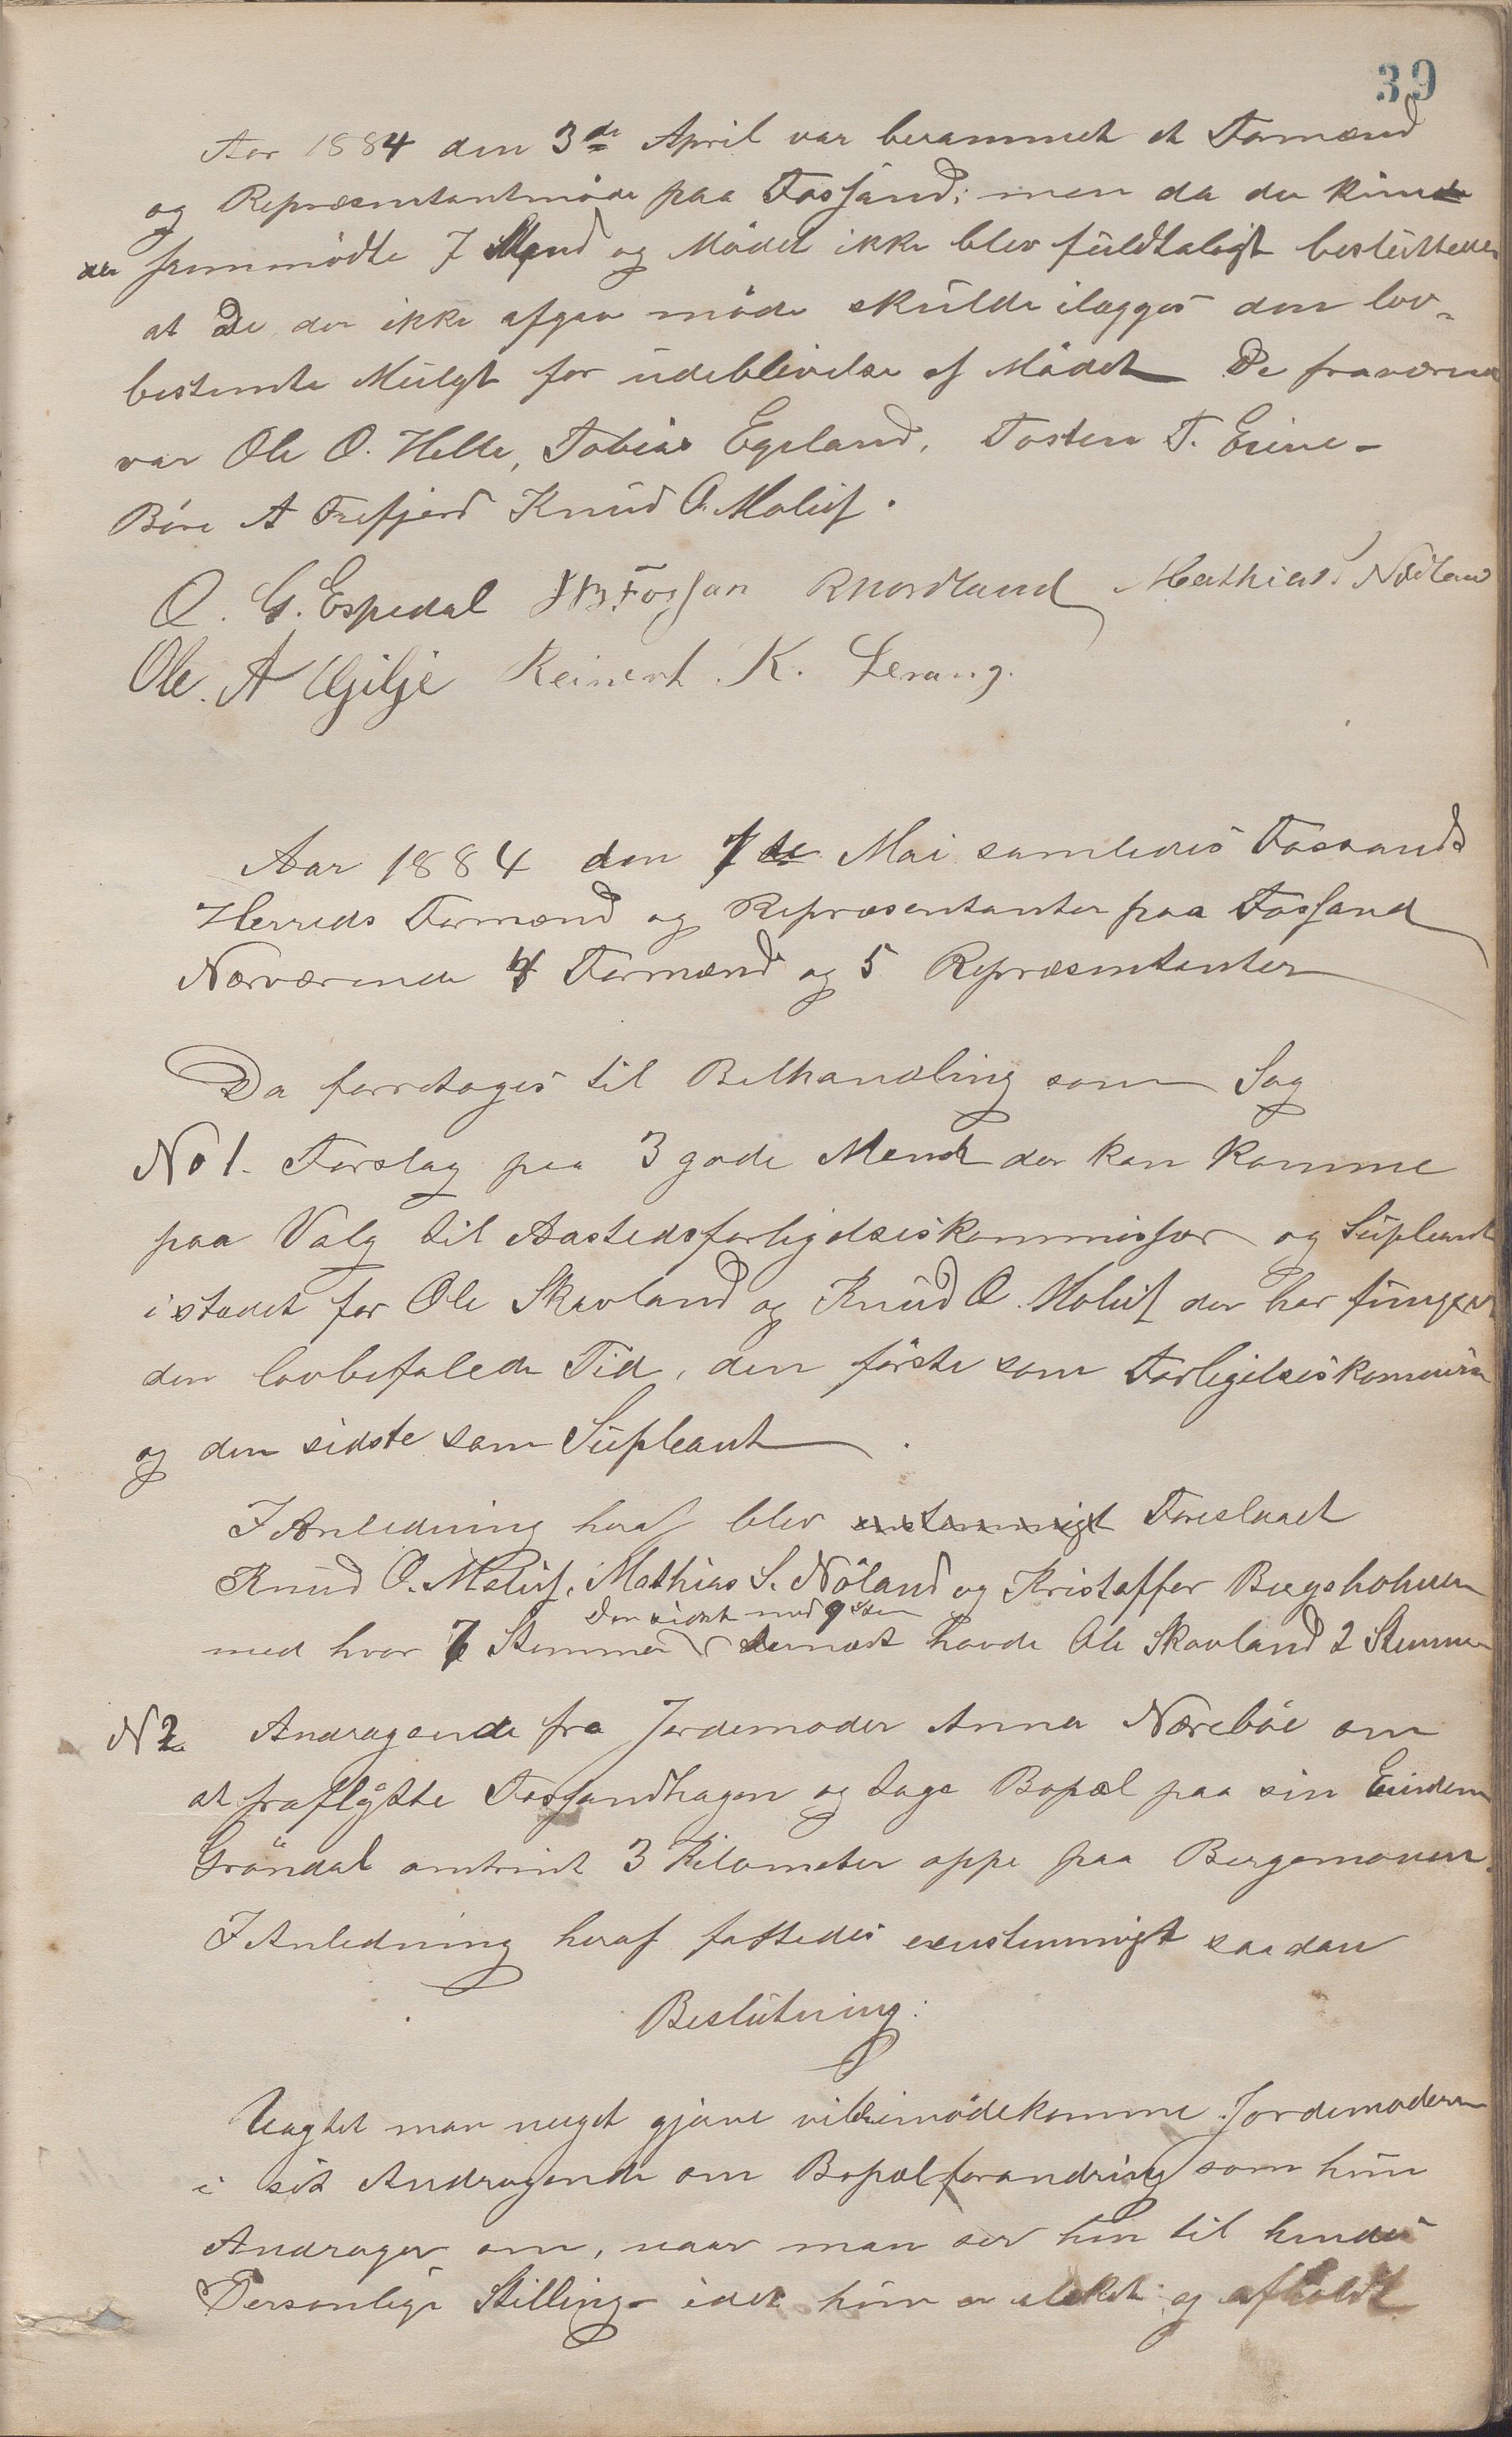 39
Aar 1884 den 3de April var berammet et Formænd
og Repræsentantmöde paa Fossand; men da der kun
der fremmödte 7 Mænd og Mödet ikke blev fuldtaligt besluttedes
at De der ikke afgav möde skulde ilægges den lov-
bestemte Mulgt for udeblivelse af Mödet De fraværende
var Ole O. Helle, Tobias Egeland, Tosten T. Eiene-
Böre A Frafjord Knud O. Maluf.
O. G. Espedal Fossan RNordland Mathias Nödland
Ole. A Gilje Reinert. K. Lerang.
Aar 1884 den 7de Mai samledes Fossands
Herreds Formænd og Repræsentanter paa Fossand
Nærværende 4 Formænd og 5 Repræsentanter
Da forretoges til Belhandling som Sag
No 1. Forslag paa 3 gode Mend der kan komme
paa Valg til Aastedsforligelseskommissær og Supleant
istedet for Ole Skavland og Knud O. Maluf der har fungert
den lovbefalede Tid, den förste som Forligelseskommisær
og den sidste som Supleant
I Anledning heraf blev enstemmigt Foreslaaet
Knud O. Maluf, Mathias S. Nöland og Kristoffer Bergeholmen
Den sidst med 9 Stem
med hver 7 Stemmer dernæst havde Ole Skavland 2 Stemmer
N 2 Andragende fra Jordemoder Anna Næreböe om
at fraflytte Fossandhagen og tage Bopæl paa sin Eiendom
Gröndal omtrint 3 Kilometer oppe paa Bergemonen.
I Anledning heraf fattedes eenstemmigt saadan
Beslutning:
Uagtet man meget gjærne vil imödekomme Jordemoderen
i sit Andragende om Bopælforandring som hun
Andrager om, naar man ser hen til hendes
Personlige Stilling idet hun er elsket og afholdt